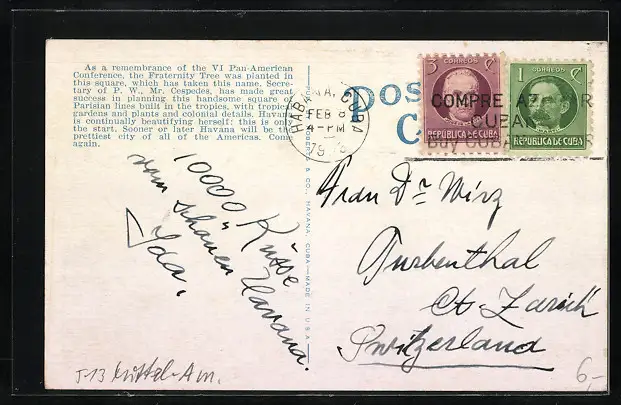 As a remembrance of the VI Pan-American
Conference, the Fraternity Tree was planted in
this square, which has taken this name. Secre-
tary of P. W., Mr. Cespedes, has made great
success in planning this handsome square on
Parisian lines built in the tropics, with tropical
gardens and plants and colonial details. Havana
is continually beautifying herself; this is only
the start. Sooner or later Havana will be the
prettiest city of all of the Americas. Come
again.
10000 Küsse
vom schönen Havana.
Ida.
HABANA, CUBA
FEB 8
4-PM
3 CORREOS C
REPUBLICA DE CUBA
1 CORREOS C
REPUBLICA DE CUBA
COMPRE AZUCAR
CUBANO
BUY CUBAN
& CO., HAVANA, CUBA—MADE IN U.S.A.
Frau Dr Wirz
Turbenthal
Ct. Zürich
Switzerland
6,-